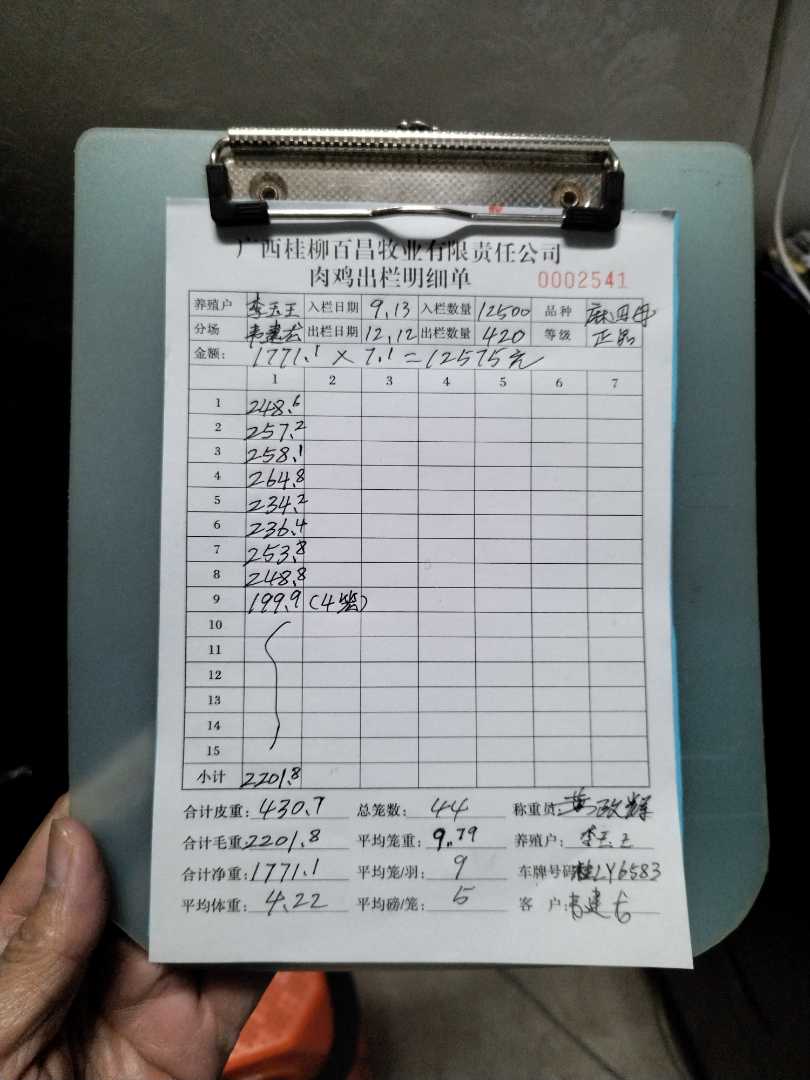 广西桂柳百昌牧业有限责任公司
肉鸡出栏明细单 0002541
养殖户 李玉王 入栏日期 9.13 入栏数量 12500 品种
分场 韦建 出栏日期 12.12 出栏数量 420 等级 正品
金额: 1771.1 × 7.1 = 12575元
1 2 3 4 5 6 7
1 248.6
2 257.2
3 258.1
4 264.8
5 234.2
6 236.4
7 253.8
8 248.8
9 199.9 (4笼)
10
11
12
13
14
15
小计 2201.8
合计皮重: 430.7 总笼数: 44 称重员: 黄政辉
合计毛重: 2201.8 平均笼重: 9.79 养殖户: 李玉王
合计净重: 1771.1 平均笼/羽: 9 车牌号码: 桂LY6583
平均体重: 4.22 平均磅/笼: 5 客户: 韦建